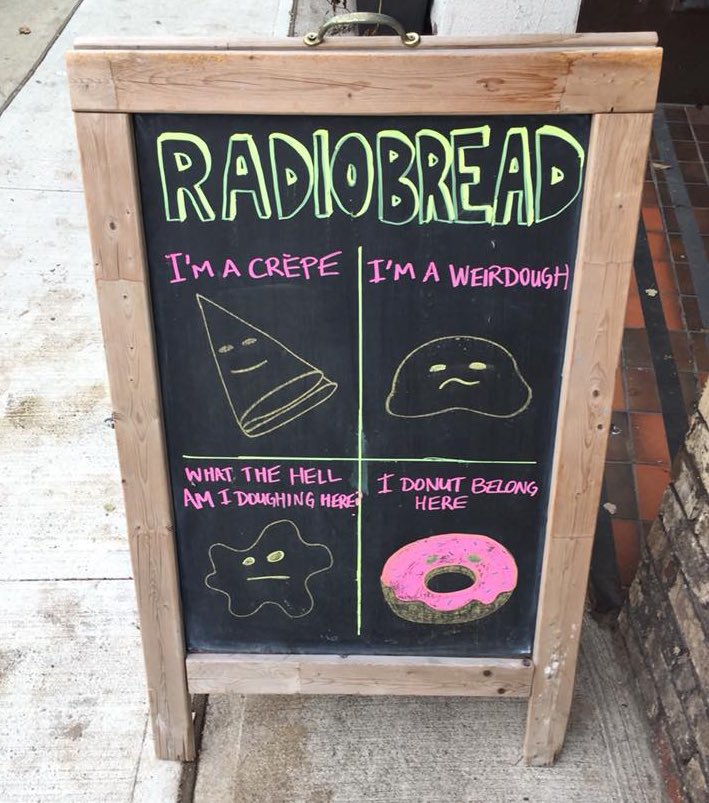 RADIOBREAD
I'M A CRÈPE
I'M A WEIRDOUGH
WHAT THE HELL
AM I DOUGHING HERE?
I DONUT BELONG
HERE